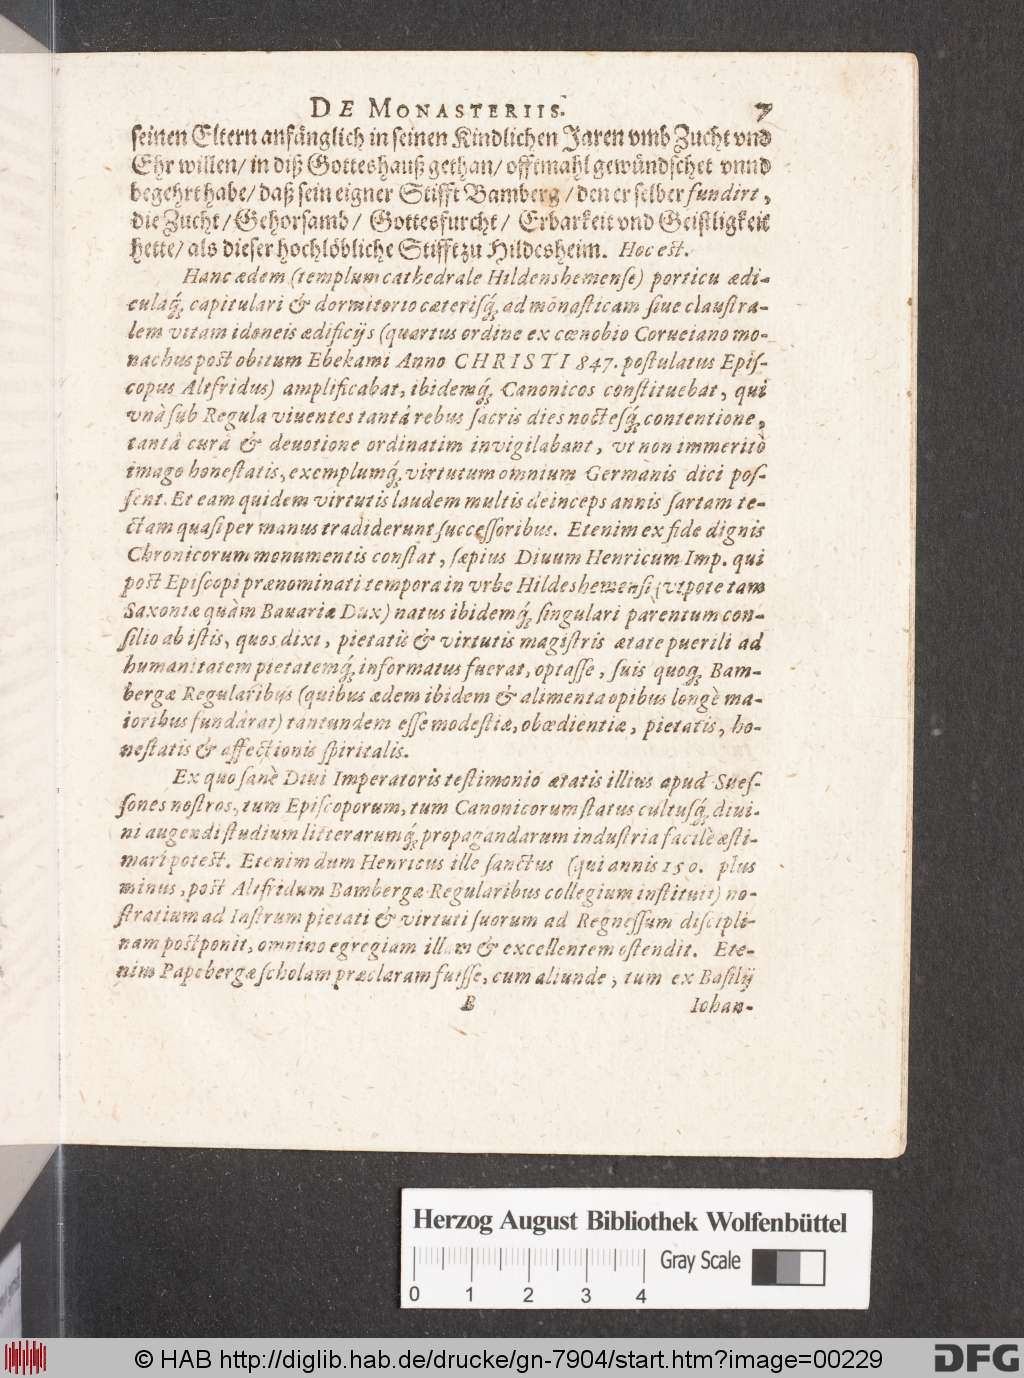 DE MONASTERIIS. 7
seinen Eltern anfänglich in seinen Kindlichen Jaren vmb Zucht vnd
Ehr willen/ in diß Gotteshauß gethan/ offtmahl gewündschet vnnd
begehrt habe/ daß sein eigner Stifft Bamberg/ den er selber fundirt,
die Zucht/ Gehorsamb/ Gottesfurcht/ Erbarkeit vnd Geistligkeit
hette/ als dieser hochlöbliche Stifft zu Hildesheim. Hoc est.
Hanc ædem (templum cathedrale Hildenshemense) porticu ædi-
culaq́; capitulari & dormitorio cæterisq́; ad mōnasticam siue claustra-
lem vitam idoneis ædificijs (quartus ordine ex cœnobio Corueiano mo-
nachus post obitum Ebekami Anno CHRISTI 847. postulatus Epis-
copus Altfridus) amplificabat, ibidemq́; Canonicos constituebat, qui
vnà sub Regula viuentes tantâ rebus sacris dies noctesq́; contentione,
tantâ curâ & deuotione ordinatim invigilabant, vt non immeritò
imago honestatis, exemplumq́; virtutum omnium Germanis dici pos-
sent. Et eam quidem virtutis laudem multis deinceps annis sartam te-
ctam quasi per manus tradiderunt successoribus. Etenim ex fide dignis
Chronicorum monumentis constat, sæpius Diuum Henricum Imp. qui
post Episcopi prænominati tempora in vrbe Hildeshemensi (vtpote tam
Saxoniæ quàm Bauariæ Dux) natus ibidemq́; singulari parentum con-
silio ab istis, quos dixi, pietatis & virtutis magistris ætate puerili ad
humanitatem pietatemq́; informatus fuerat, optasse, suis quoq; Bam-
bergæ Regularibus (quibus ædem ibidem & alimenta opibus longè ma-
ioribus fundârat) tantundem esse modestiæ, obœdientiæ, pietatis, ho-
nestatis & affectionis spiritalis.
Ex quo sanè Diui Imperatoris testimonio ætatis illius apud Sues-
sones nostros, tum Episcoporum, tum Canonicorum status cultusq́; diui-
ni augendi studium litterarumq́; propagandarum industria facilè æsti-
mari potest. Etenim dum Henricus ille sanctus (qui annis 150. plus
minus, post Altfridum Bambergæ Regularibus collegium instituit) no-
stratium ad Iastrum pietati & virtuti suorum ad Regnessum discipli-
nam postponit, omnino egregiam illam & excellentem ostendit. Ete-
nim Papebergæ scholam præclaram fuisse, cum aliunde, tum ex Basilij
B Iohan-
Herzog August Bibliothek Wolfenbüttel
Gray Scale
0 1 2 3 4
© HAB http://diglib.hab.de/drucke/gn-7904/start.htm?image=00229
DFG